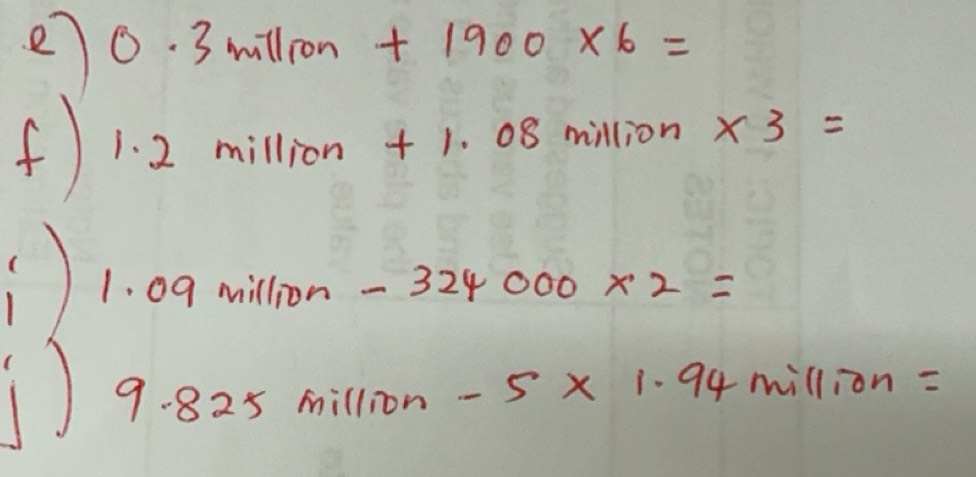 e) 0.3 million + 1900 × 6 =
f) 1.2 million + 1.08 million × 3 =
i) 1.09 million - 324 000 × 2 =
j) 9.825 million - 5 × 1.94 million =